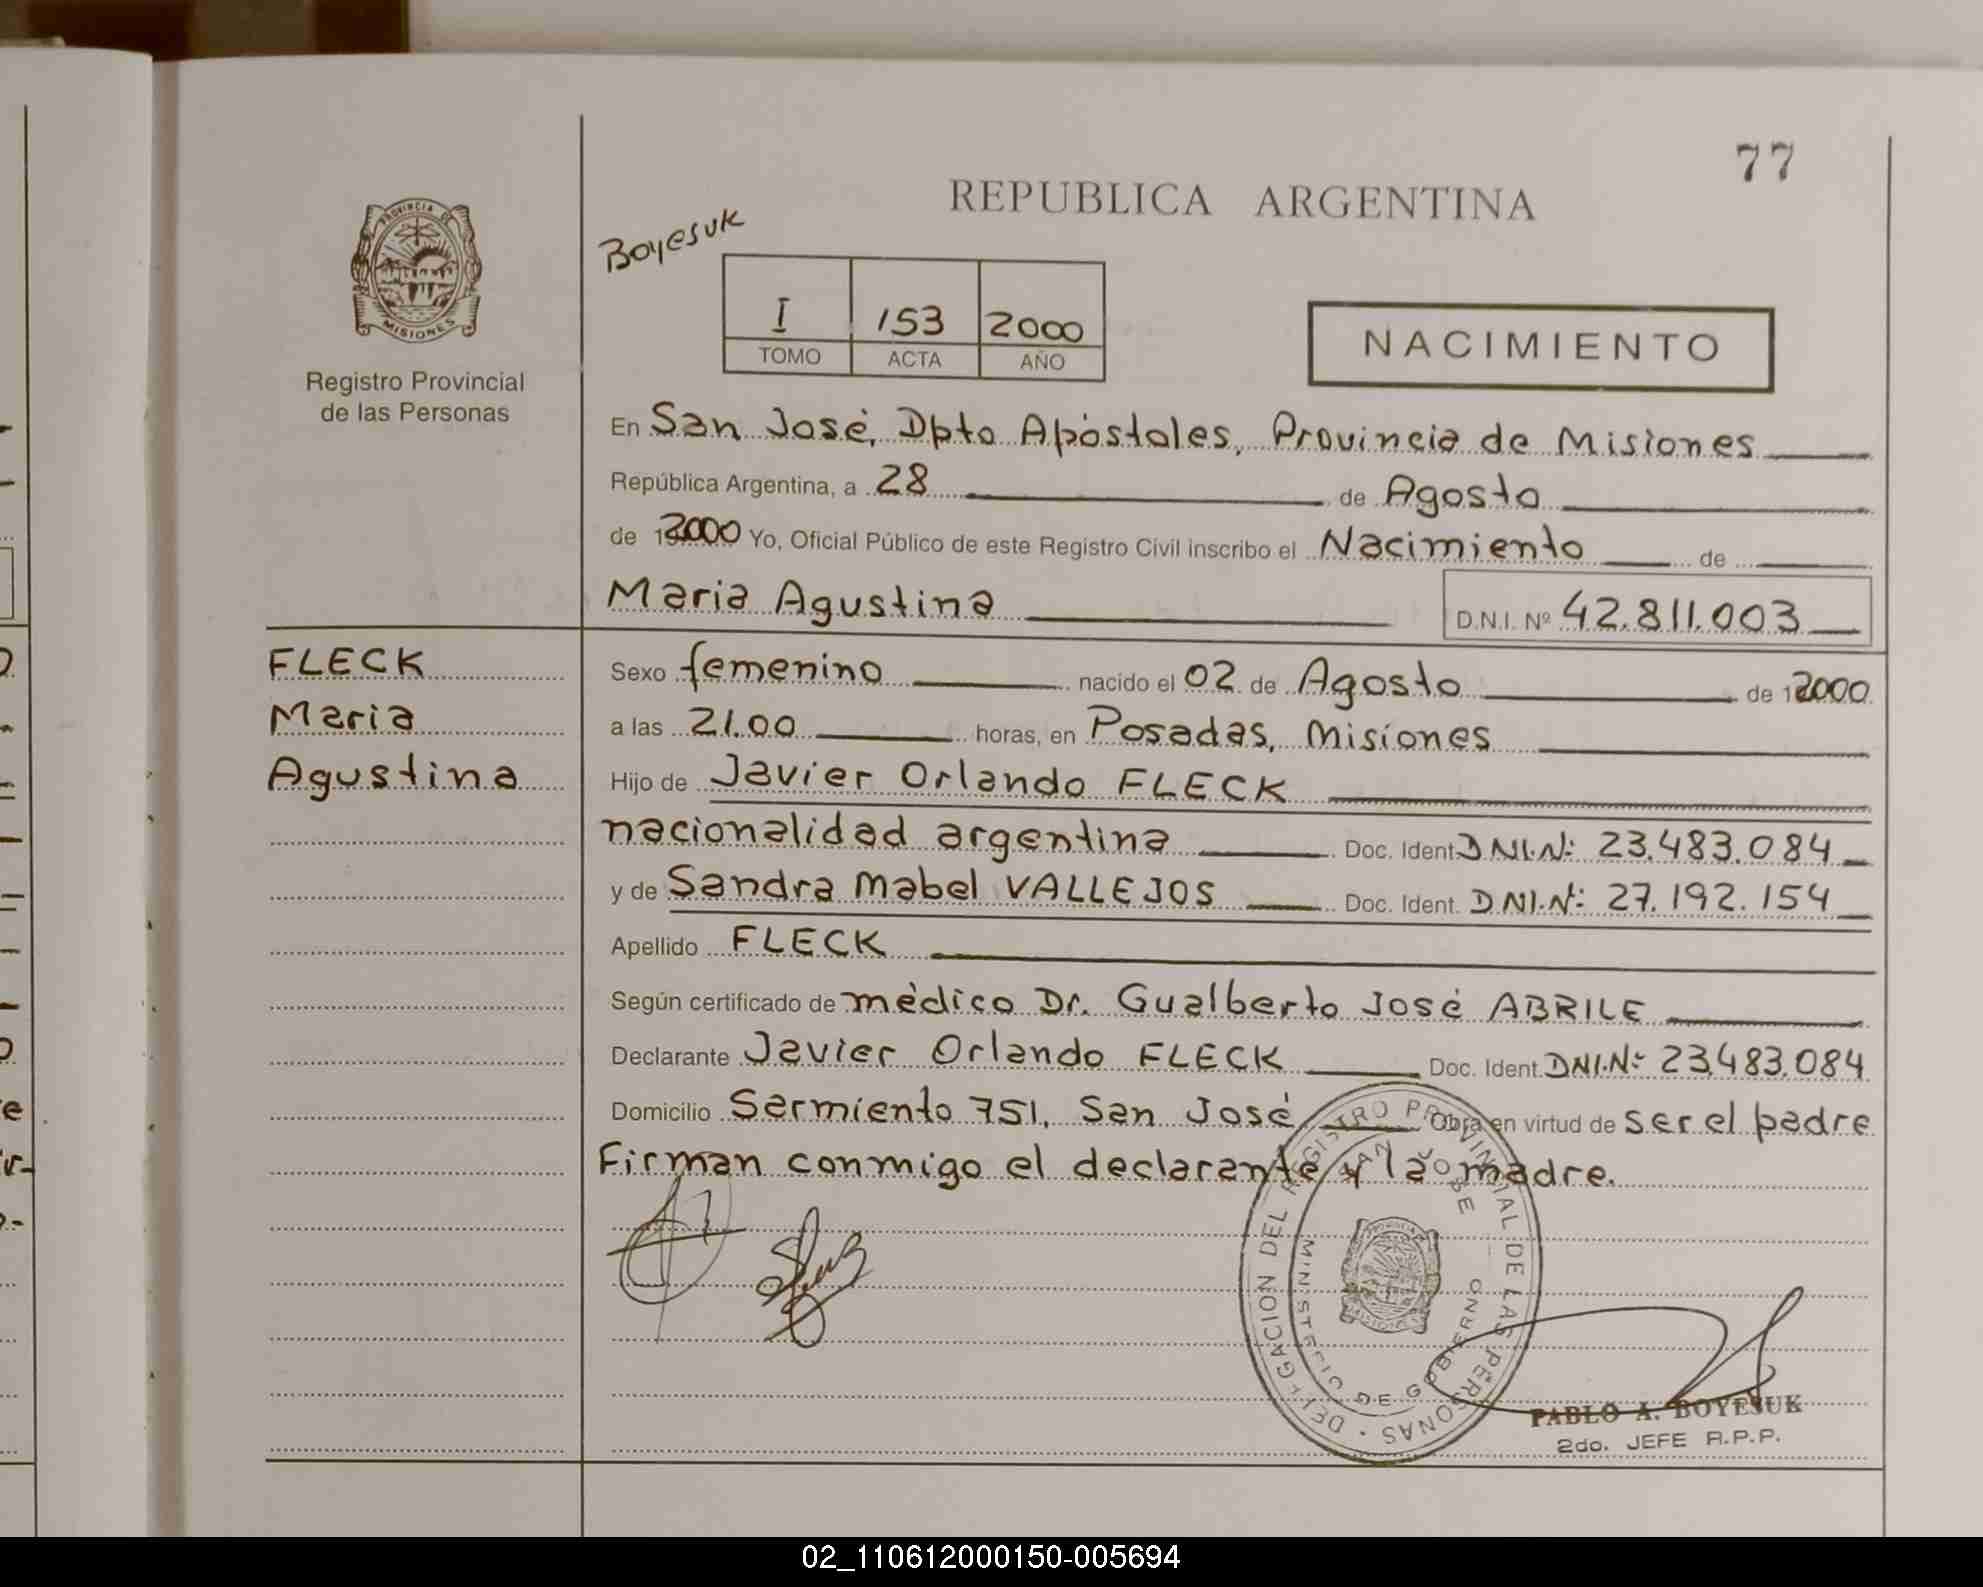 77
REPUBLICA ARGENTINA
Boyesuk
PROVINCIA DE
MISIONES
Registro Provincial
de las Personas
I 153 2000
TOMO ACTA AÑO
NACIMIENTO
En San José, Dpto Apóstoles, Provincia de Misiones
República Argentina, a 28 de Agosto
de 2000 Yo, Oficial Público de este Registro Civil inscribo el Nacimiento de
Maria Agustina D.N.I. Nº 42.811.003
FLECK
Maria
Agustina
Sexo femenino nacido el 02 de Agosto de 2000
a las 21.00 horas, en Posadas, Misiones
Hijo de Javier Orlando FLECK
nacionalidad argentina Doc. Ident. DNI.Nº: 23.483.084
y de Sandra Mabel VALLEJOS Doc. Ident. DNI.Nº: 27.192.154
Apellido FLECK
Según certificado de médico Dr. Gualberto José ABRILE
Declarante Javier Orlando FLECK Doc. Ident. DNI.Nº: 23.483.084
Domicilio Sarmiento 751, San José Obra en virtud de ser el padre
Firman conmigo el declarante y la madre.
DELEGACION DEL REGISTRO PROVINCIAL DE LAS PERSONAS
SAN JOSE
MINISTERIO DE GOBIERNO
PABLO A. BOYESUK
2do. JEFE R.P.P.
02_110612000150-005694